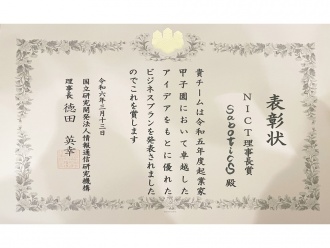 表彰状
NICT理事長賞
Sabotics 殿
貴チームは令和五年度起業家
甲子園において卓越した
アイデアをもとに優れた
ビジネスプランを発表されました
のでこれを賞します
令和六年三月十三日
国立研究開発法人情報通信研究機構
理事長 徳田 英幸